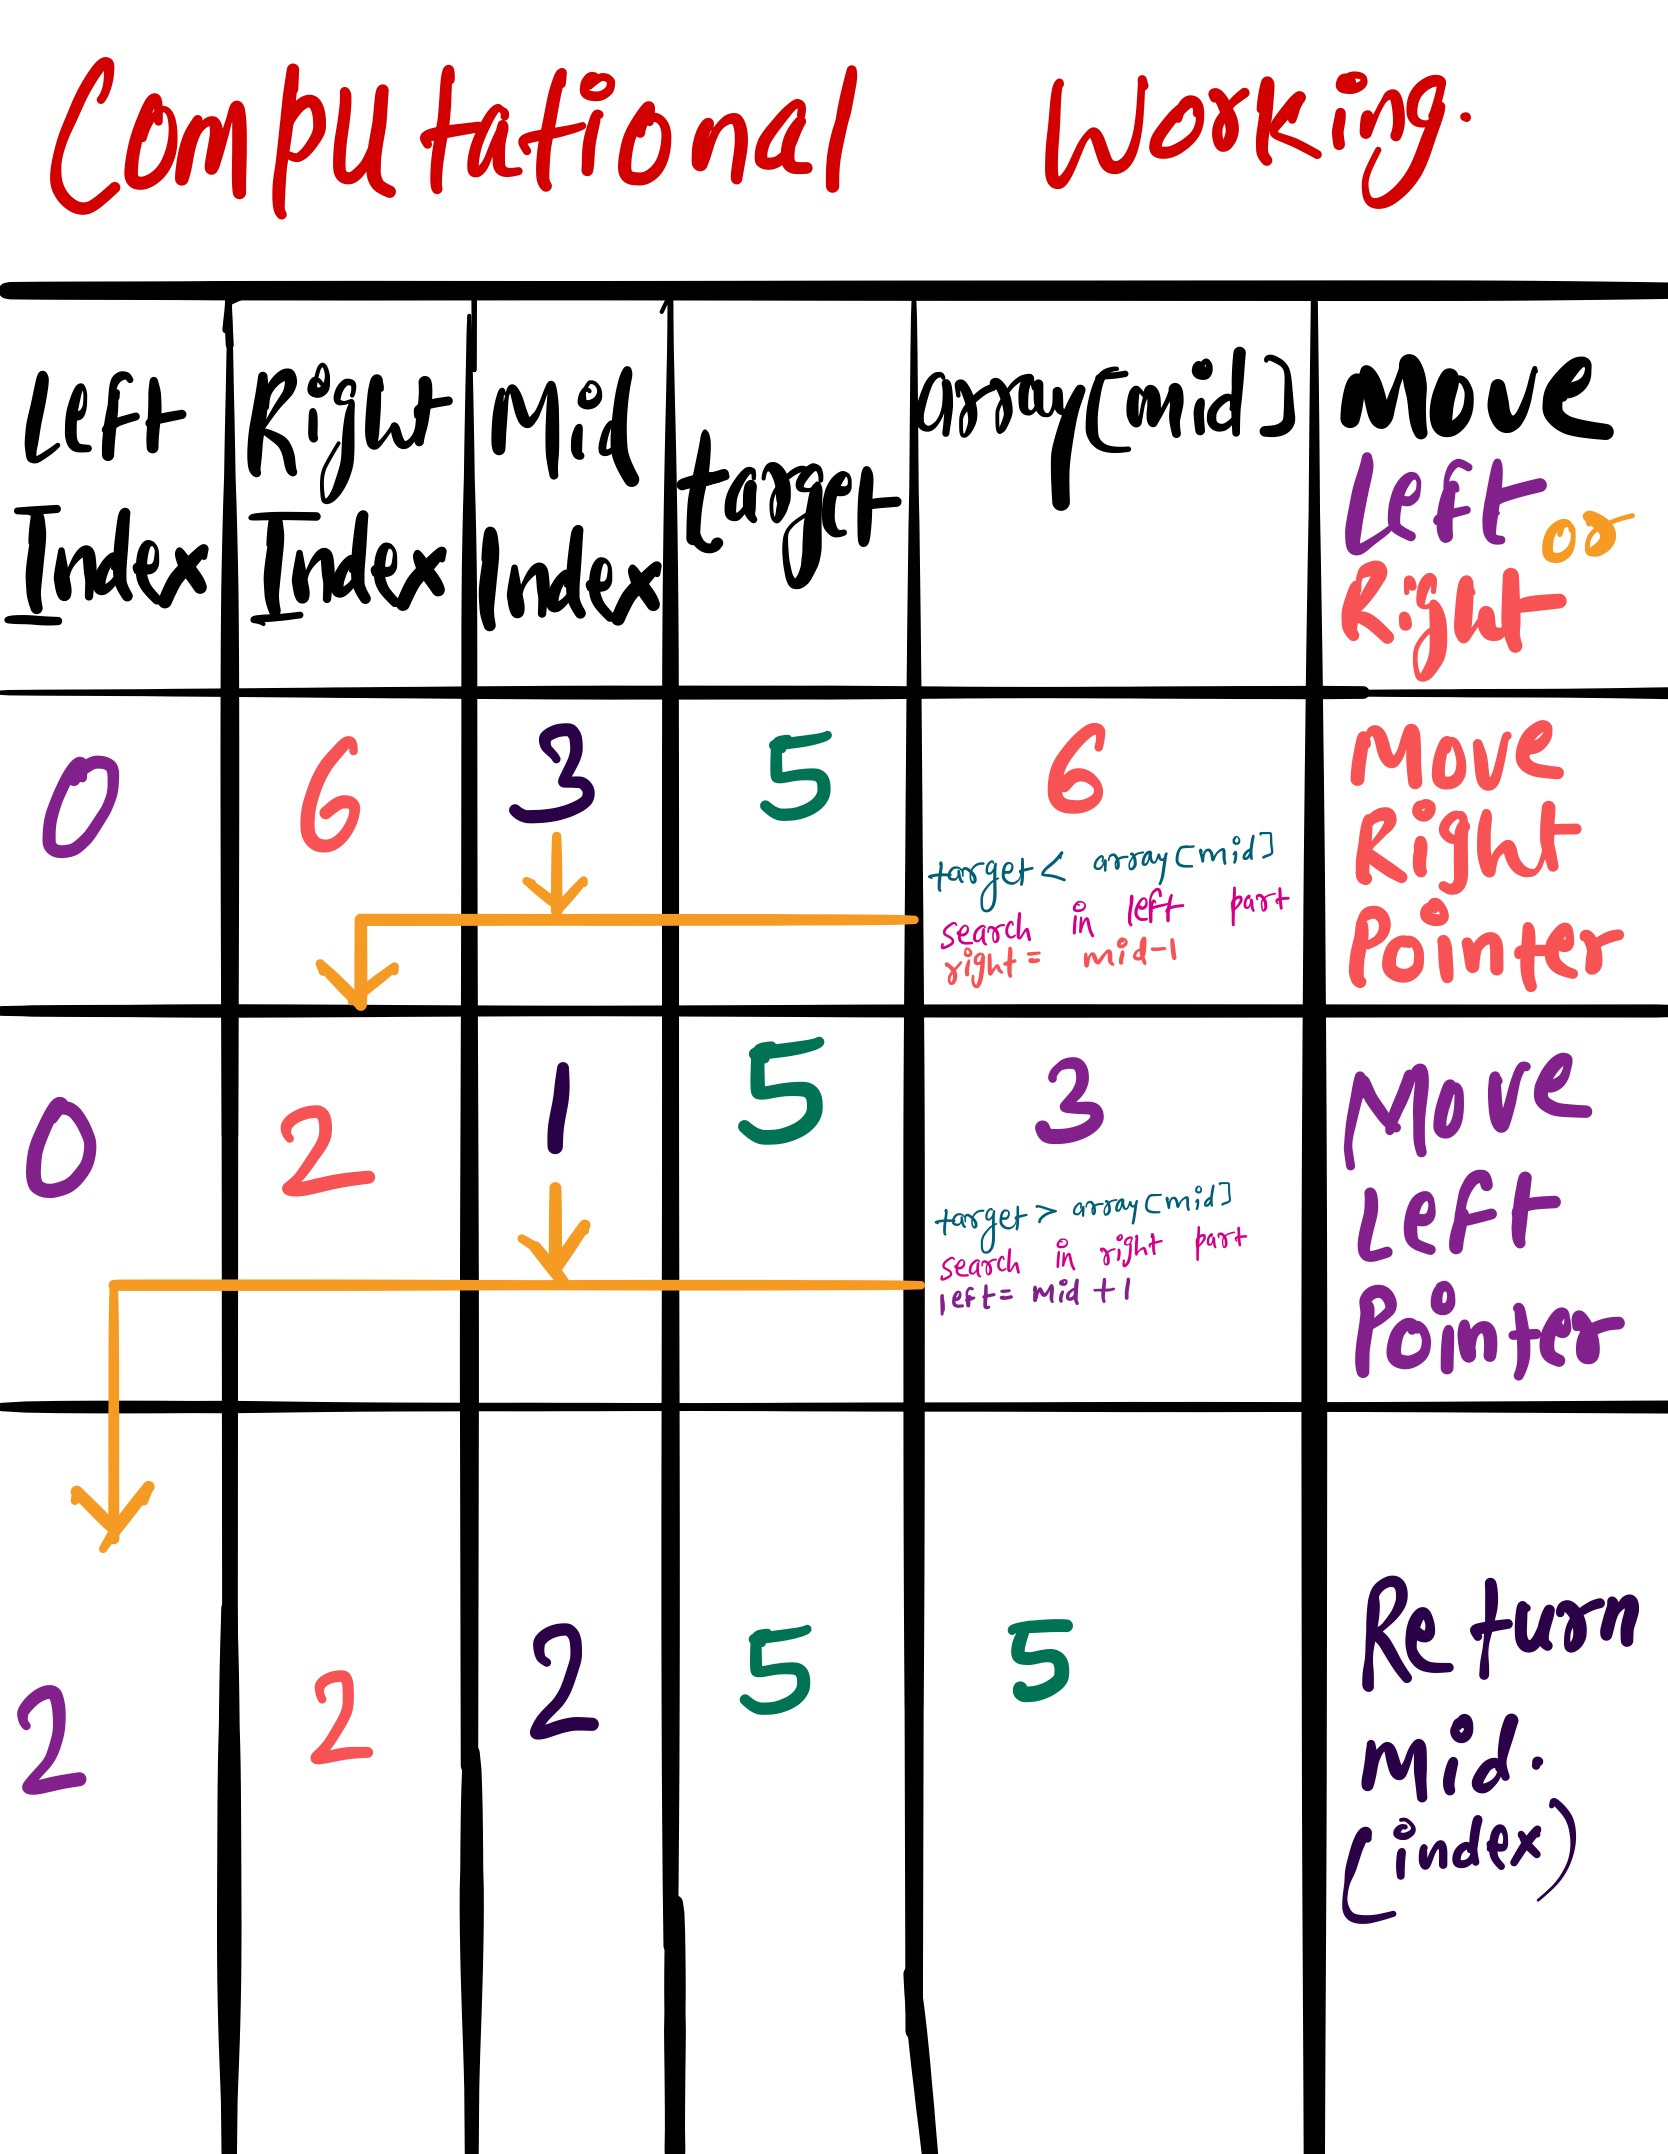 Computational Working.
Left Index
Right Index
Mid Index
target
array[mid]
Move Left or Right
0
6
3
5
6
target < array[mid]
search in left part
right = mid-1
Move Right Pointer
0
2
1
5
3
target > array[mid]
search in right part
left = mid +1
Move Left Pointer
2
2
2
5
5
Return Mid.
(index)